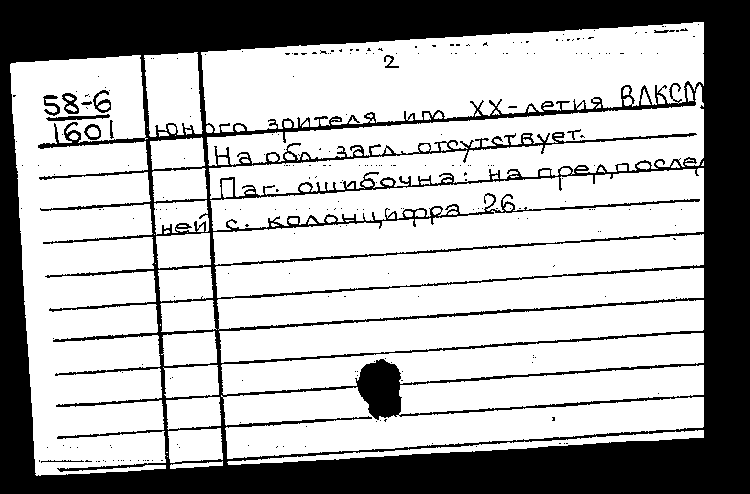 2
58-6
1601
юного зрителя им XX-летия ВЛКСМ
На обл. загл. отсутствует.
Паг. ошибочна: на предпослед
ней с. колонцифра 26.